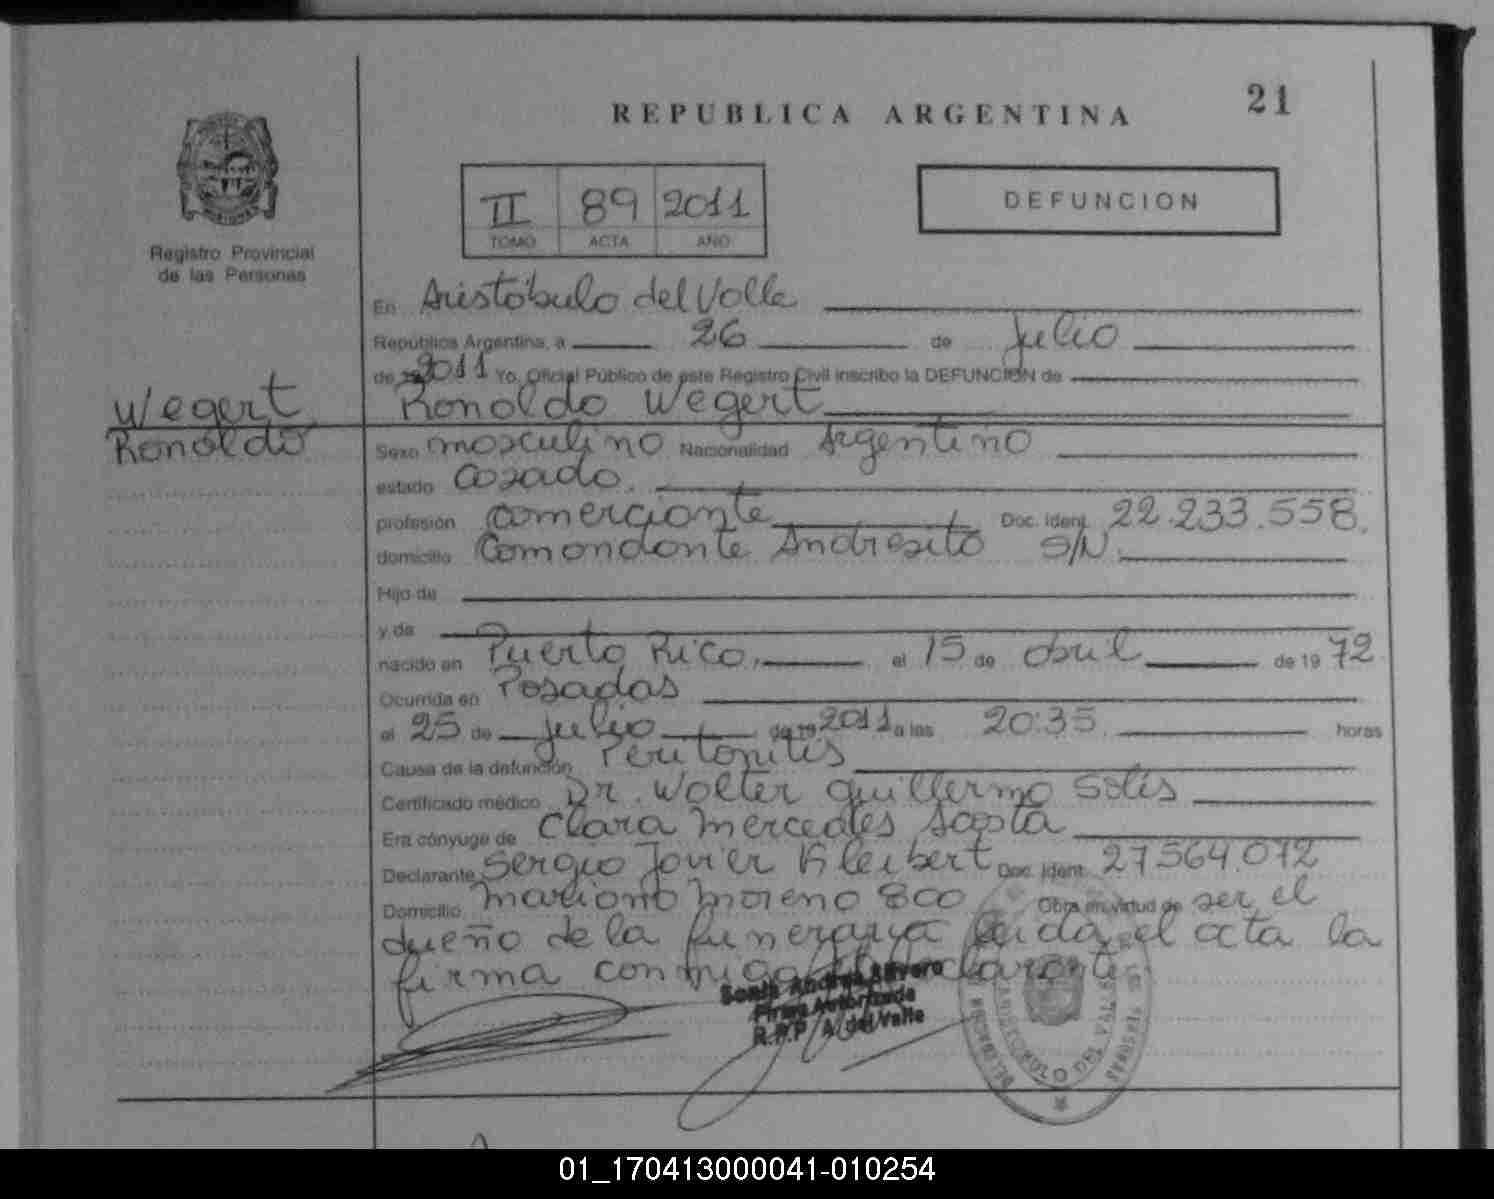 21
REPUBLICA ARGENTINA
II 89 2011
TOMO ACTA AÑO
DEFUNCION
Registro Provincial
de las Personas
En Aristóbulo del Valle
República Argentina, a 26 de Julio
de 2011 Yo, Oficial Público de este Registro Civil inscribo la DEFUNCION de
Ronaldo Wegert
Wegert
Ronaldo
Sexo masculino Nacionalidad Argentino
estado Casado.
profesión comerciante Doc. Ident. 22.233.558.
domicilio Comandante Andresito S/N.
Hijo de
y de
nacido en Puerto Rico, el 15 de abril de 1972
Ocurrida en Posadas
el 25 de julio de 19 2011 a las 20:35. horas
Causa de la defunción Peritonitis
Certificado médico Dr. Walter Guillermo Solis
Era cónyuge de Clara Mercedes Acosta
Declarante Sergio Javier Kleibert Doc. Ident. 27564.072
Domicilio Mariano Moreno 800 Obra en virtud de ser el
dueño de la funeraria leida el acta la
firma conmigo el declarante
Sonia Andrea
Firma Autorizada
R.P.P. A. del Valle
01_170413000041-010254